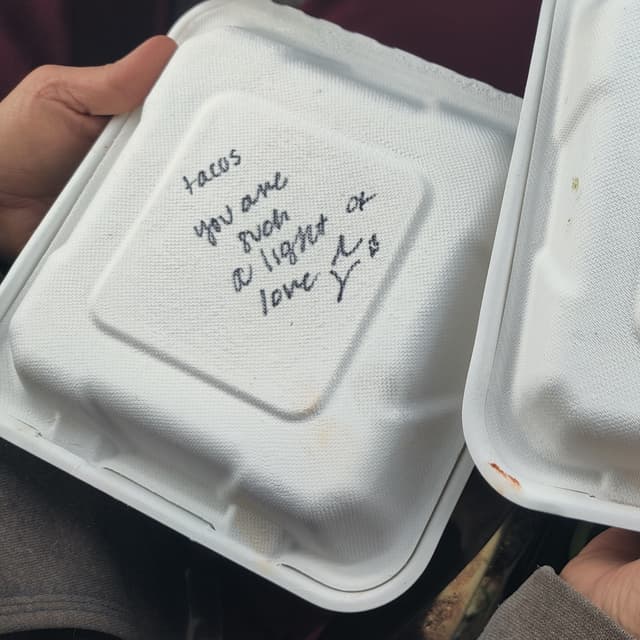 tacos
you are
such
a light of
love